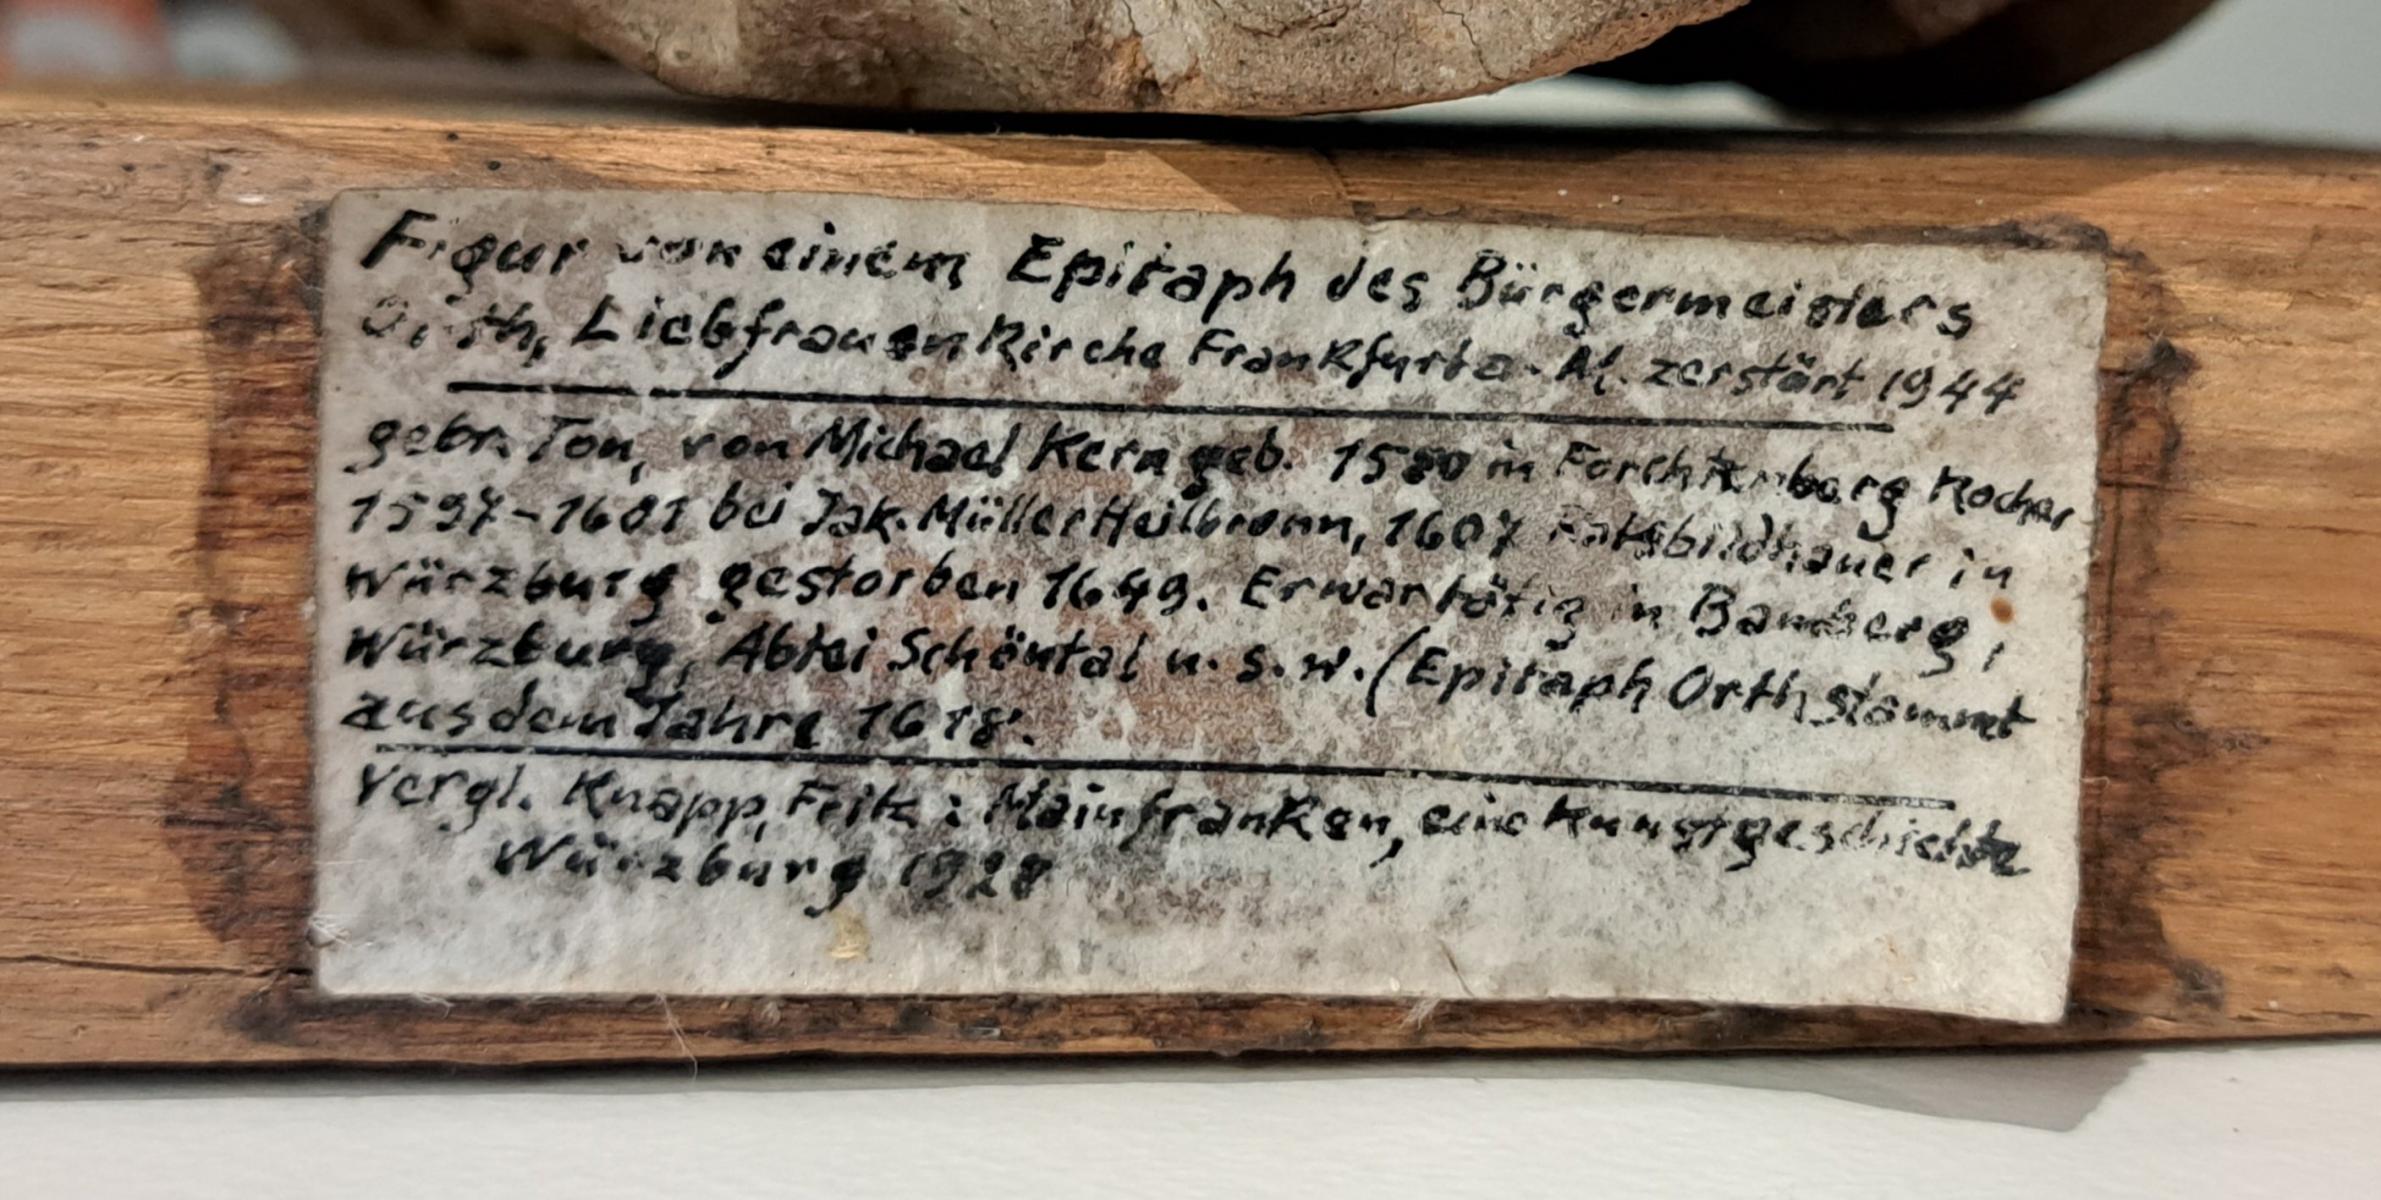 Figur von einem Epitaph des Bürgermeisters
Orth, Liebfrauenkirche Frankfurt a. M. zerstört 1944
gebr. Ton, von Michael Kern geb. 1580 in Forchtenberg Kocher
1597-1601 bei Jak. Müller Heilbronn, 1607 Ratsbildhauer in
Würzburg gestorben 1649. Er war tätig in Bamberg,
Würzburg, Abtei Schöntal u. s. w. (Epitaph Orth stammt
aus dem Jahre 1618.
Vergl. Knapp, Fritz: Mainfranken, eine Kunstgeschichte
Würzburg 1928